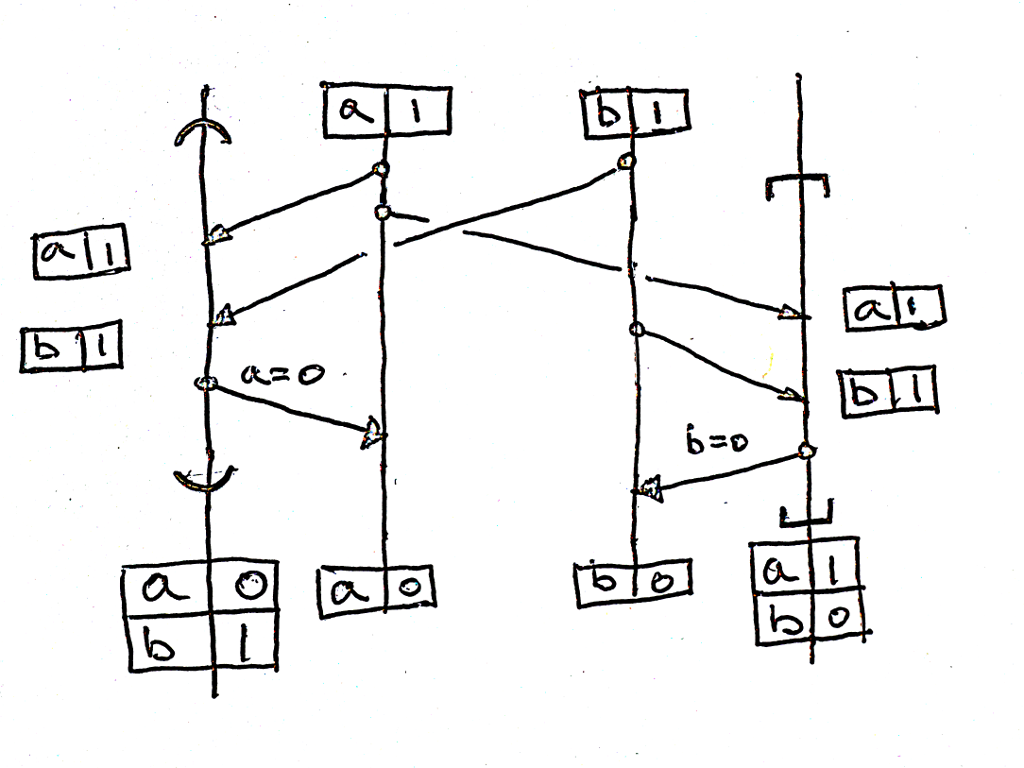 a 1
b 1
a 1
b 1
a 1
b 1
a=0
b=0
a 0
b 1
a 0
b 0
a 1
b 0